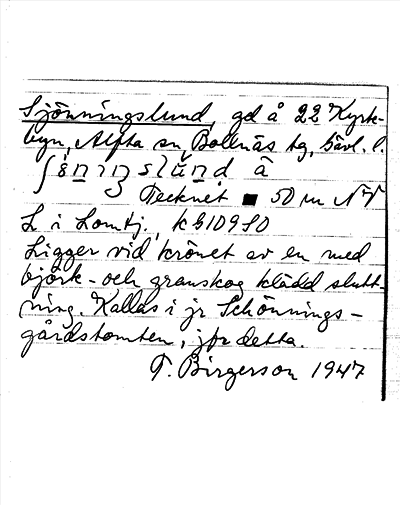 Sjönningslund, gd å 22 Kyrk-
byn, Alfta sn, Bollnäs tg, Gävl. l.
Tecknet ■ 50 m NV
L i Lantj., k G10980
Ligger vid krönet av en med
björk- och granskog klädd slutt-
ning. Kallas i jr Schönnings-
gårdstomten, jfr detta.
T. Birgerson 1947